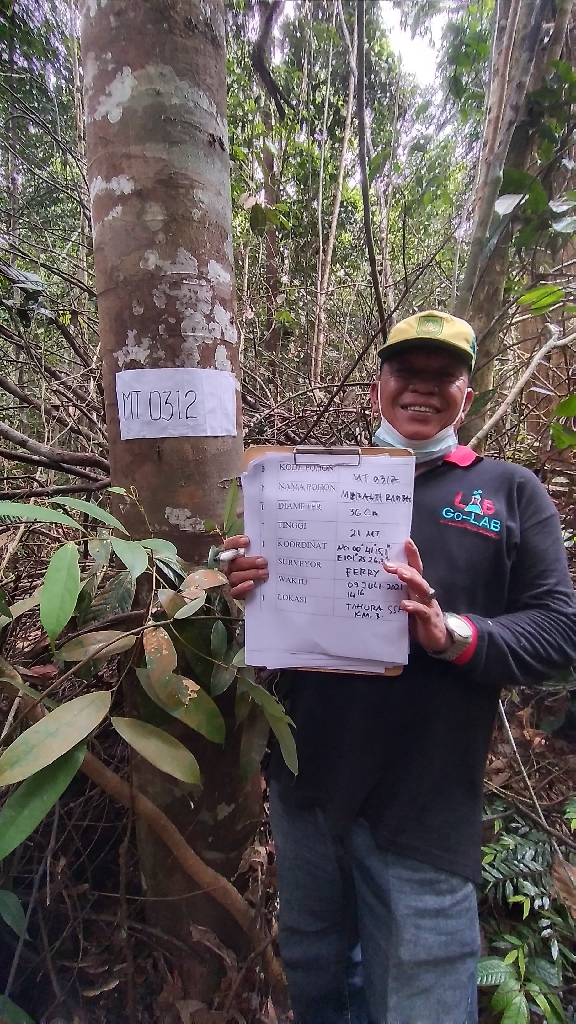 MT 0312
KODE POHON MT 0312
NAMA POHON
DIAMETER 36 CM
TINGGI 21 MT
KOORDINAT N0 00°41'51"
SURVEYOR FERRY
WAKTU 09 JULI 2021
1416
LOKASI TAHURA SSH
KM. 3.
LAB
Go-LAB